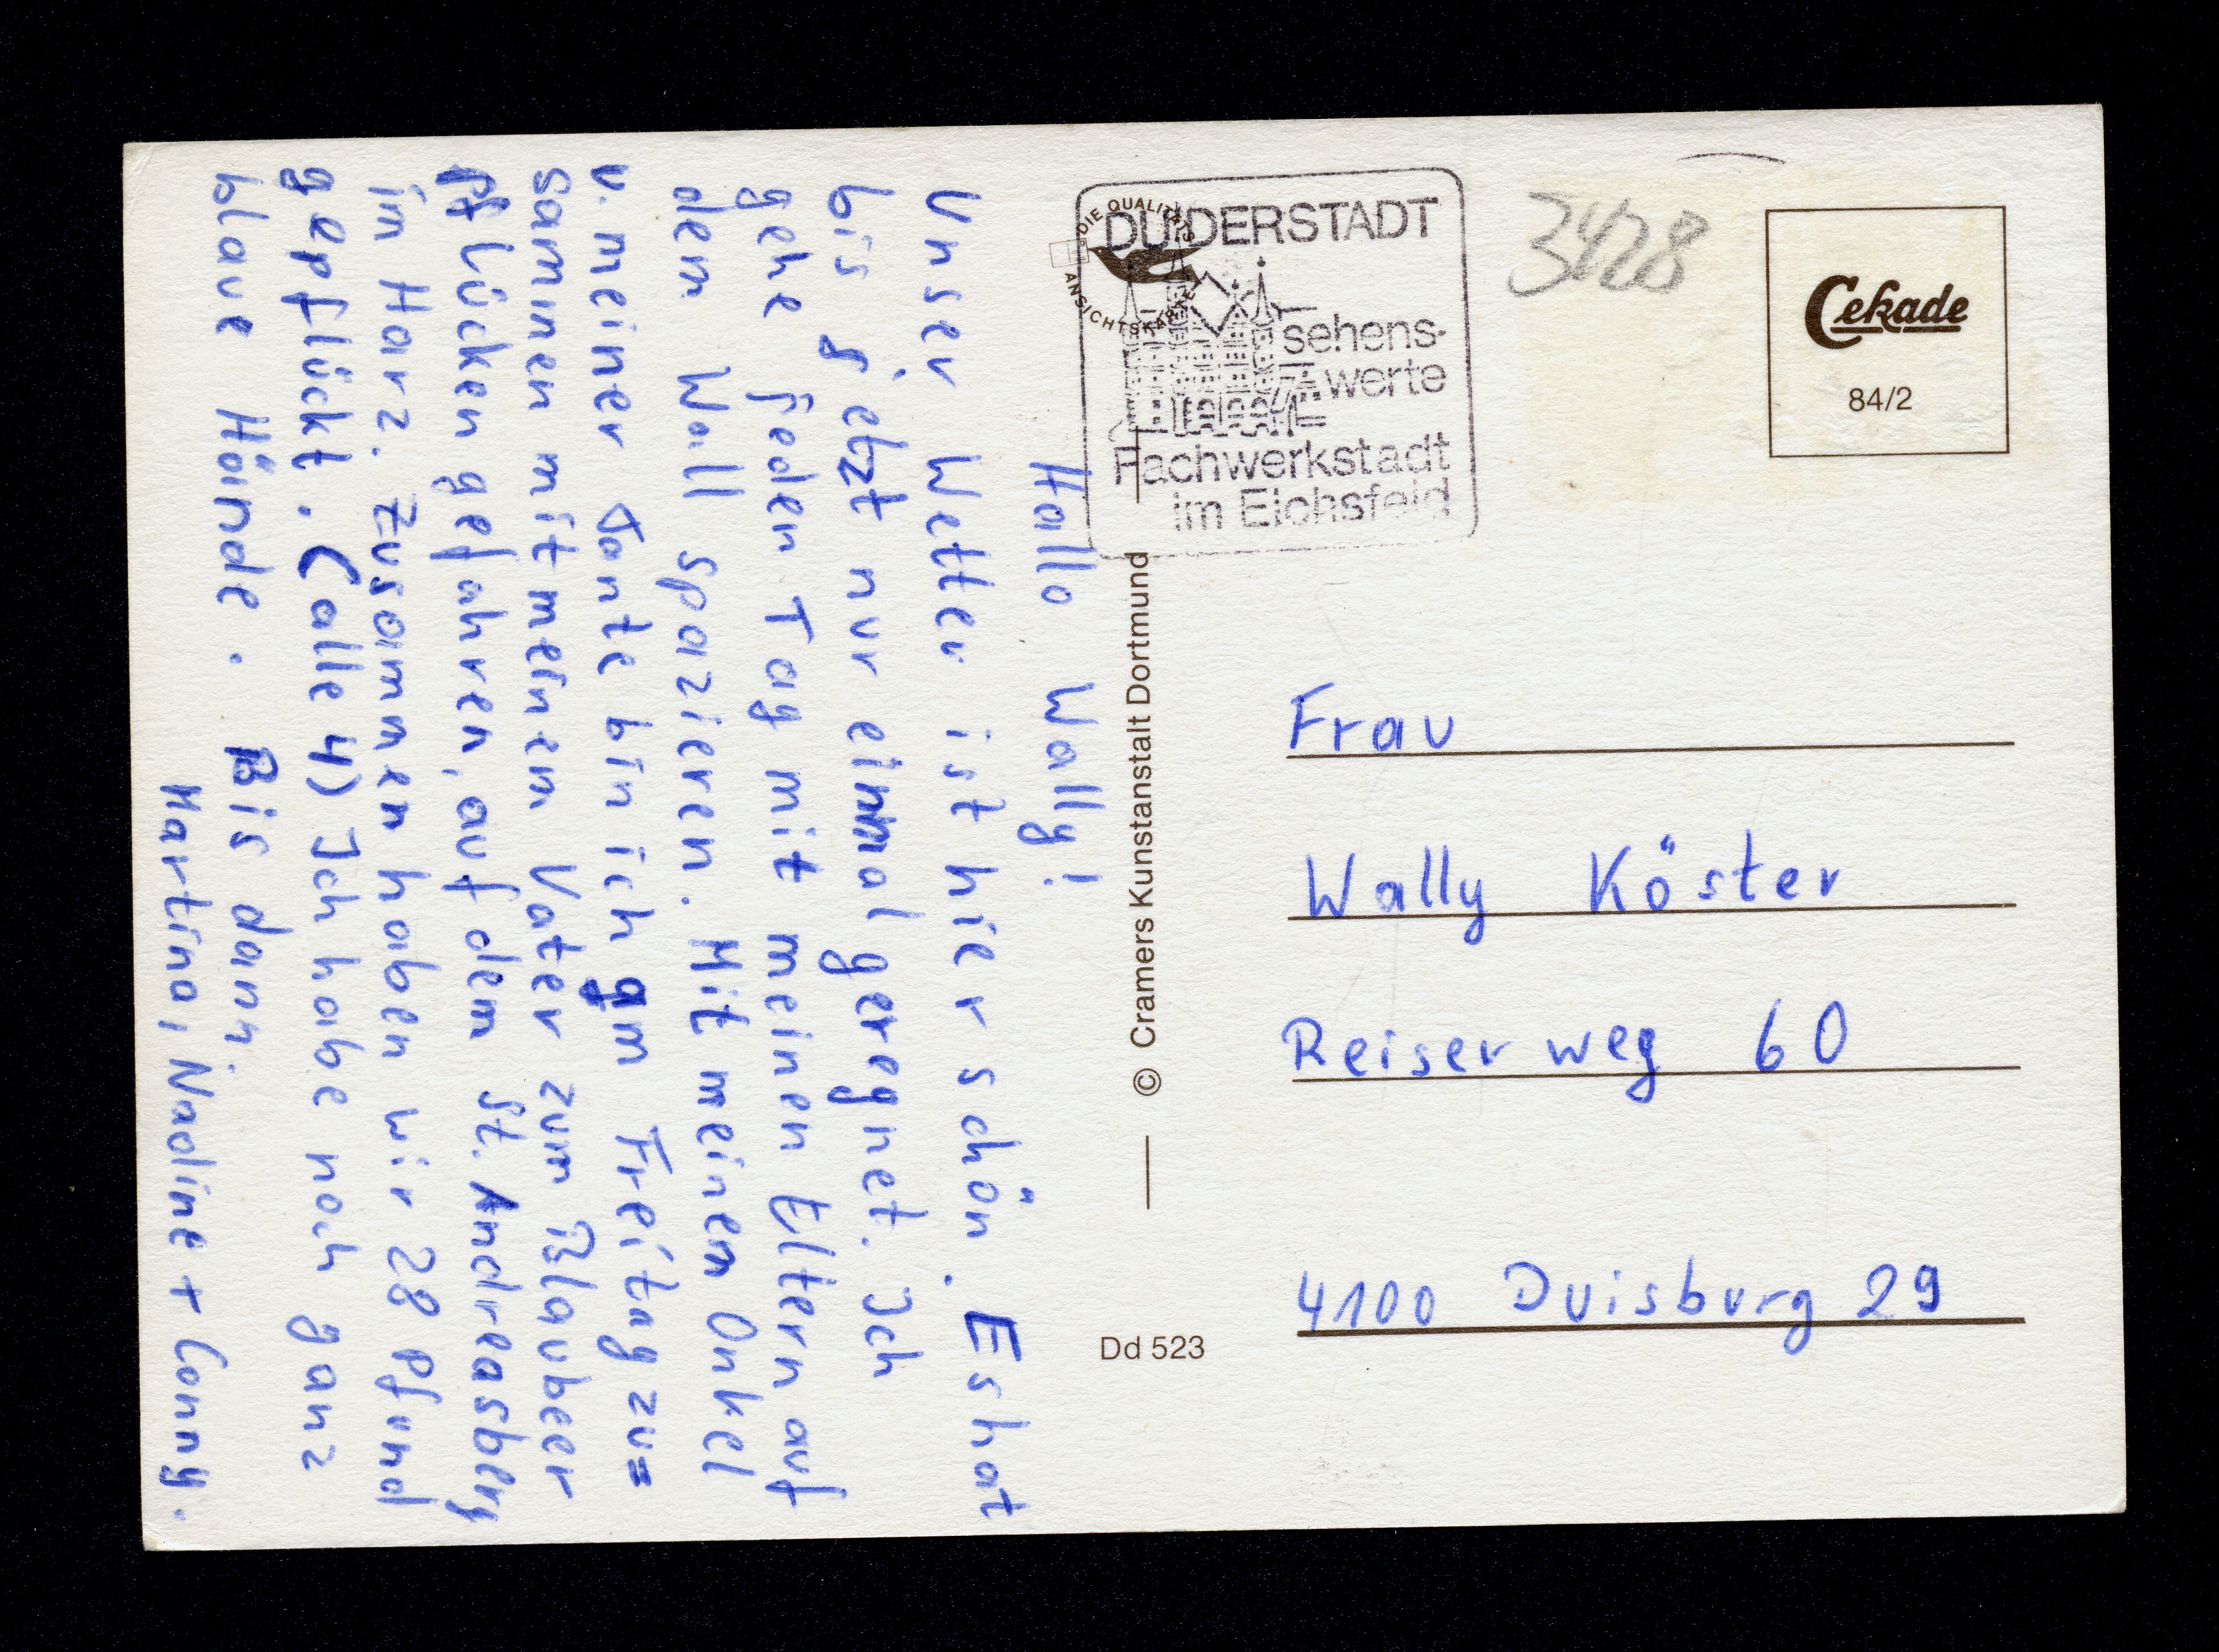 Hallo Wally!
Unser Wetter ist hier schön. Es hat
bis jetzt nur einmal geregnet. Ich
gehe jeden Tag mit meinen Eltern auf
dem Wall spazieren. Mit meinem Onkel
u. meiner Tante bin ich am Freitag zu=
sammen mit meinem Vater zum Blaubeer
pflücken gefahren, auf dem St. Andreasberg
im Harz. Zusammen haben wir 28 Pfund
gepflückt. (alle 4) Ich habe noch ganz
blaue Hände. Bis dann.
Martina, Nadine + Conny.
DIE QUALITÄTS
ANSICHTSKARTE
DUDERSTADT
sehens-
werte
Fachwerkstadt
im Eichsfeld
© Cramers Kunstanstalt Dortmund
Dd 523
3428
Cekade
84/2
Frau
Wally Köster
Reiserweg 60
4100 Duisburg 29